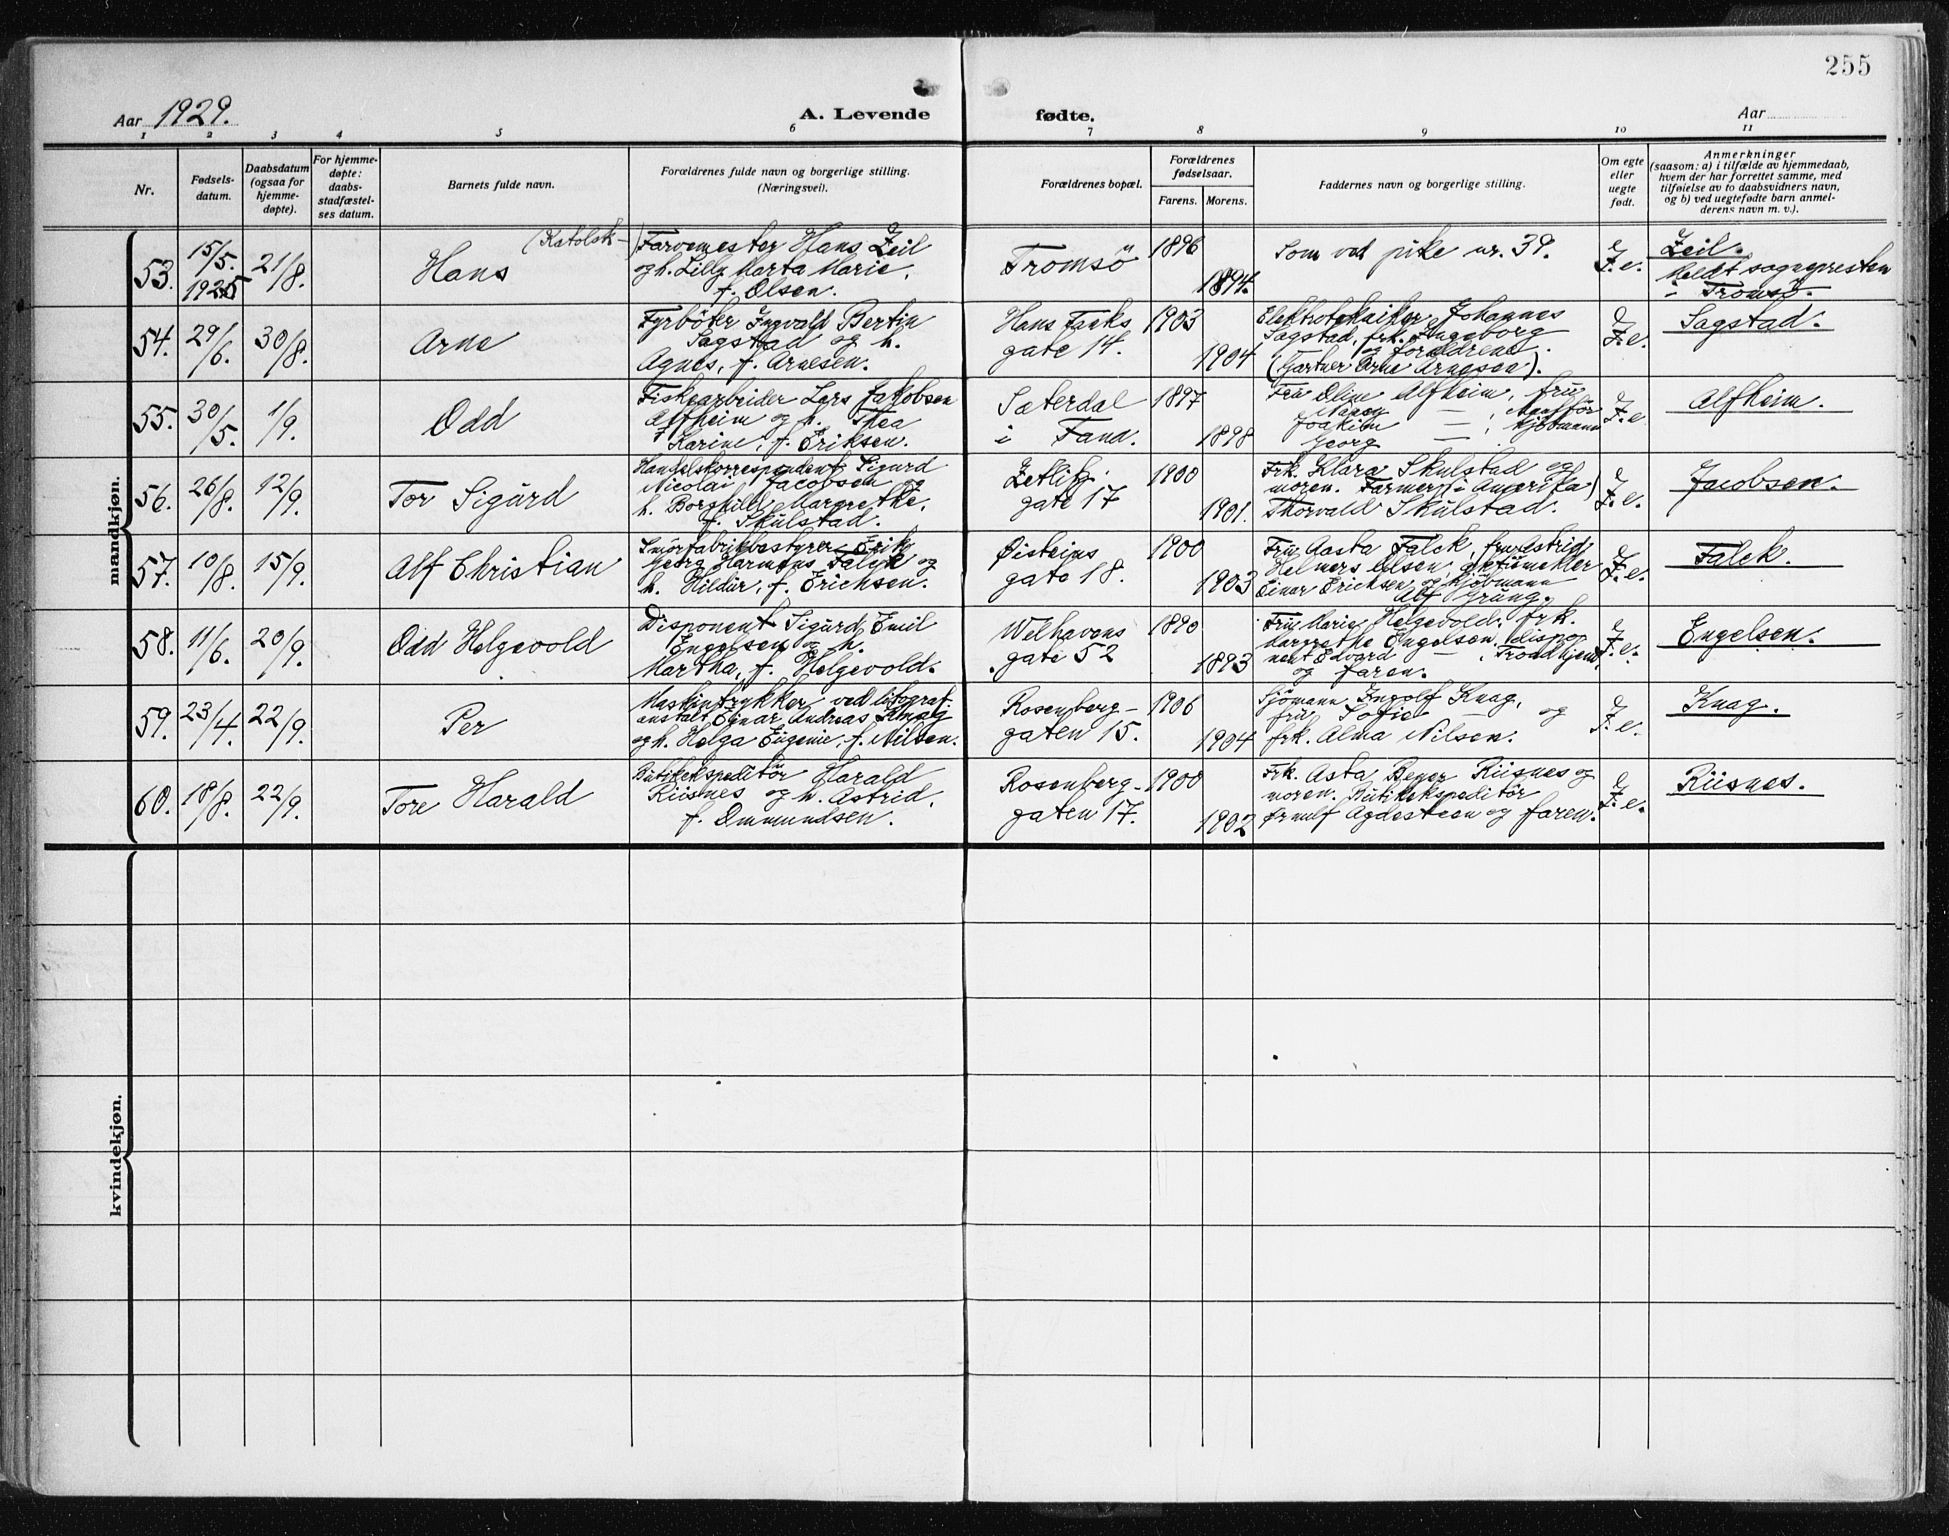 255
Aar 1929.
A. Levende fødte.
Aar
1 2 3 4 5 6 7 8 9 10 11
Nr.
Fødsels-
datum.
Daabsdatum
(ogsaa for
hjemme-
døpte).
For hjemme-
døpte:
daabs-
stadfæstel-
ses datum.
Barnets fulde navn.
Forældrenes fulde navn og borgerlige stilling.
(Næringsvei).
Forældrenes bopæl.
Forældrenes
fødselsaar.
Farens. Morens.
Faddernes navn og borgerlige stilling.
Om egte
eller
uegte
født.
Anmerkninger
(saasom: a) i tilfælde av hjemmedaab,
hvem der har forrettet samme, med
tilføielse av to daabsvidners navn,
og b) ved uegtefødte barn anmel-
derens navn m. v.).
mandkjøn.
53.
15/5.
1925
21/8.
Hans
(Katolsk-)
Farvemester Hans Zeil
og h. Lilly Marta Marie,
f. Olsen.
Tromsö
1896
1894.
Som ved pike nr. 39.
F. e.
Zeil.
Meldt sognepresten
i Tromsö.
54.
29/6.
30/8.
Arne
Fyrböter Ingvald Bertin
Sagstad og h.
Agnes, f. Arnesen.
Hans Tanks
gate 14.
1903
1904
Elektrotekniker Johannes
Sagstad, frk. Ingeborg
og foreldrene.
(Gartner Arne Arnesen).
F. e.
Sagstad.
55.
30/5.
1/9.
Odd
Fiskearbeider Lars Jakobsen
Alfheim og h. Thea
Karine, f. Eriksen.
Sæterdal
i Fana.
1897
1898
Fru Oline Alfheim, fru
Nancy —
Joakim —
Georg —
F. e.
Alfheim.
56.
26/8.
12/9.
Tor Sigurd
Handelskorrespondent Sigurd
Nicolai Jacobsen og
h. Borghild Margrethe,
f. Skulstad.
Zetlitz
gate 17
1900
1901.
Frk. Klara Skulstad og
moren. Farmer (i Amerika)
Thorvald Skulstad.
F. e.
Jacobsen.
57.
10/8.
15/9.
Alf Christian
Smörfabrikbestyrer Erik
Georg Harmens Falck og
h. Hildur, f. Erichsen.
Øisteins
gate 18.
1900
1903
Fru Aasta Falck, fru Astrid
Helmers Olsen, aktiemekler
Einar Erichsen og kjöbmann
Alf Grung.
F. e.
Falck.
58.
11/6.
20/9.
Odd Helgevold
Disponent Sigurd Emil
Engelsen og h.
Martha, f. Helgevold.
Welhavens
gate 52
1890
1893
Fru Marie Helgevold, frk.
Margrethe Engelsen, dispo-
nent Edvard — , Trondhjem
og faren.
F. e.
Engelsen.
59.
23/4.
22/9.
Per
Maskintrykker ved litograf-
anstalt Einar Andreas Knag
og h. Helga Eugenie, f. Nilsen.
Rosenberg-
gaten 15.
1906
1904
Sjömann Ingolf Knag,
fru Sofie — og
frk. Alma Nilsen.
F. e.
Knag.
60.
18/8.
22/9.
Tore Harald
Butikekspeditör Harald
Riisnes og h. Astrid,
f. Ommundsen.
Rosenberg-
gaten 17.
1900
1902
Frk. Asta Beyer Riisnes og
moren. Butikekspeditör
Ørnulf Agdesteen og faren.
F. e.
Riisnes.
kvindekjøn.